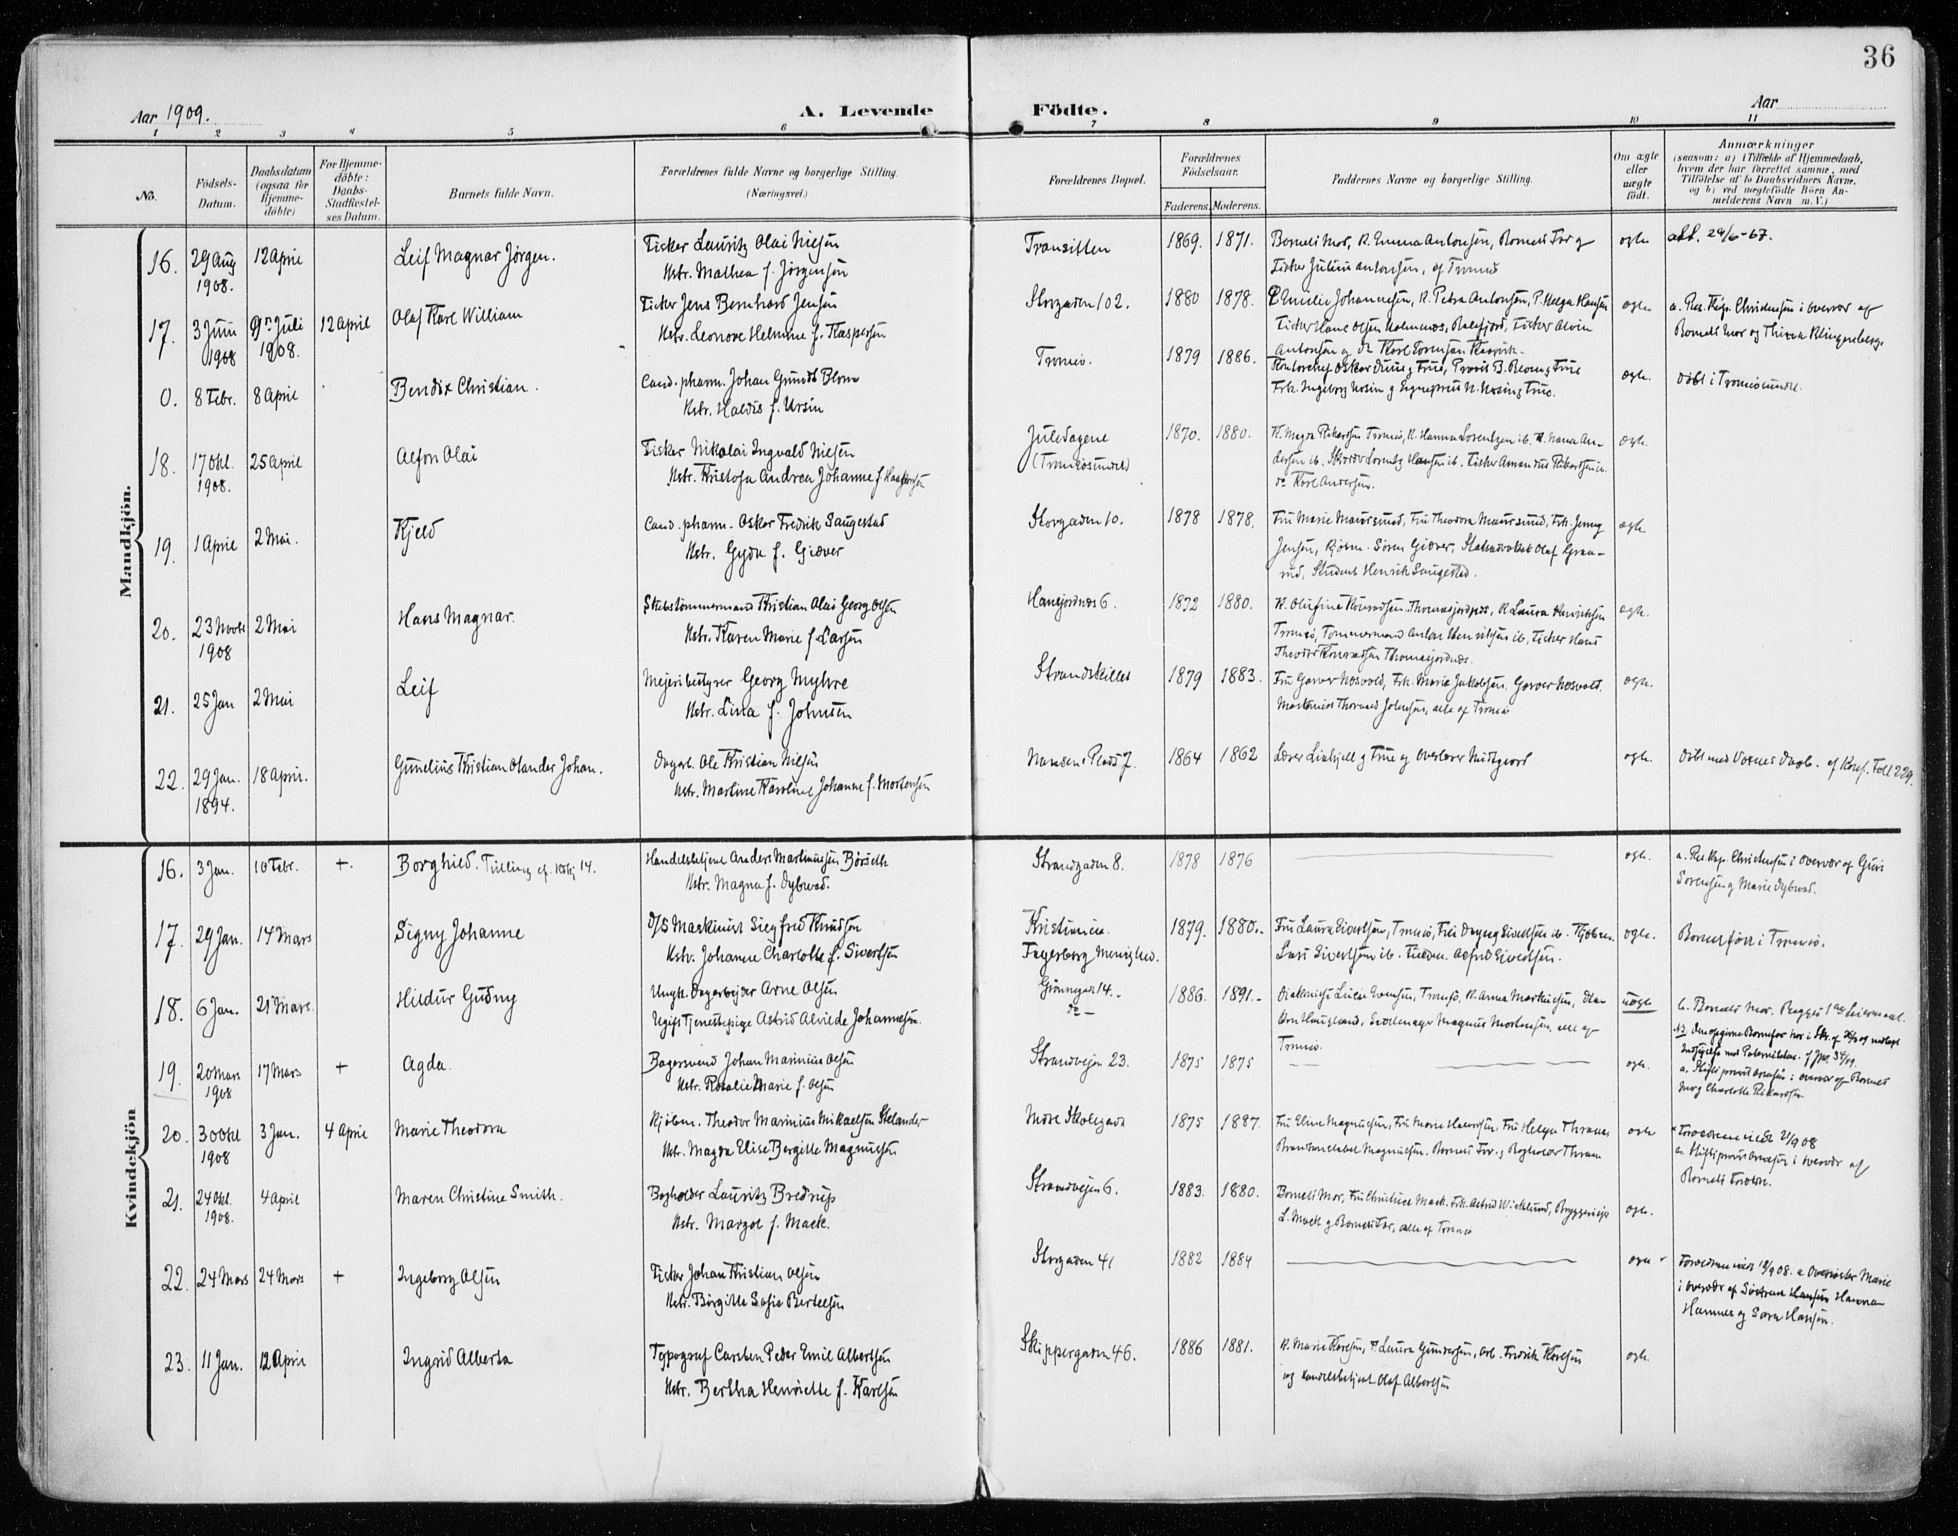 36
Aar 1909.
A. Levende Födte.
Aar
1 2 3 4 5 6 7 8 9 10 11
No.
Födsels-Datum.
Daabsdatum (ogsaa for Hjemme-döbte)
For Hjemme-döbte: Daabs-Stadfæstel-ses Datum.
Barnets fulde Navn.
Forældrenes fulde Navne og borgerlige Stilling. (Næringsvei.)
Forældrenes Bopæl.
Forældrenes Födselsaar.
Faderens. Moderens.
Faddernes Navne og borgerlige Stilling.
Om ægte eller uægte födt.
Anmærkninger
(saasom: a) i Tilfælde af Hjemmedaab, hvem der har forrettet samme, med Tilföielse af to Daabsvidners Navne, og b) ved uægtefödte Börn An-melderens Navn m. V.)
Mandkjön.
16. 29 Aug 1908. 12 April Leif Magnar Jörgen.
Fisker Lauritz Olai Nielsen
Hstr. Mathea f. Jörgensen
Transitten 1869. 1871.
Barnets Mor, K. Emma Antonsen, Barnets Far og
Fisker Julius Antonsen, af Tromsö
ægte att. 29/6-67.
17. 3 Juni 1908 9n Juli 1908. 12 April Olaf Karl William
Fisker Jens Bernhard Jensen
Hstr. Leonore Helmine f. Kaspersen
Storgaden 102. 1880 1878.
Emilie Johannesen, K. Petra Antonsen, P. Helga Hansen
Fisker Hans Olsen Holmenes, Balsfjord, Fisker Alvin
Antonsen og do Karl Sörensen
ægte a. Res. Kap. Christensen i Overvær af
Barnets Mor og Thina Klingenberg.
0. 8 Febr. 8 April Bendix Christian.
Cand. pharm. Johan Gundt Blom
Hstr. Haldis f. Ursin
Tromsö. 1879 1886.
Kontorchef Oskar Duus og Frue, Provis B. Blom og Frue
Frk. Ingeborg Ursin og N. Ursin og Frue.
ægte. Döbt i Tromsösundet.
18. 17 Okt. 1908. 25 April Alfon Olai
Fisker Nikolai Ingvald Nielsen
Hstr. Kristofa Andrea Johanne f.
Juledagene (Tromsösundet) 1870. 1880.
K. Magda Rikardsen Tromsö, K. Hanna Lorentzen ib. K. Nanna An-
dersen ib. Skræder Lorentz Hansen ib. Fisker Amandus Rikardsen ib.
do Karl Andersen.
ægte
19. 1 April 2 Mai. Kjeld
Cand. pharm. Oskar Fredrik Saugestad
Hstr. Gyda f. Giæver
Storgaden 10. 1878 1878.
Fru Marie Maursund, Fru Theodora Maursund, Frk. Jenny
Jensen, Kjöbm. Sören Giæver, Statsadvokat Olaf Gran-
, Student Henrik Saugestad.
ægte
20. 23 Novbr 1908 2 Mai Hans Magnar.
Skibstömmermand Kristian Olai Georg Olsen
Hstr. Karen Marie f. Larsen
Hansjordnes 6. 1872 1880.
K. Olufine Konradsen Thomasjordnes, K. Laura Henriksen
Tromsö, Tömmermand Anton Henriksen ib, Fisker Hans
Theodor Konradsen Thomasjordnes.
ægte.
21. 25 Jan 2 Mai Leif
Meieribestyrer Georg Myhre
Hstr. Lina f. Johnsen
Strandskillet 1879 1883.
Fru Garver Nosvold, Frk. Marie Jakobsen, Garver Nosvold,
Maskinist Thorvald Johnsen, alle af Tromsö
ægte.
22. 29 Jan. 1894. 18 April. Gunelius Kristian Olander Johan.
Dagarb. Ole Kristian Nielsen
Hstr. Martine Karoline Johanne f. Mortensen
Nansens Plads 7. 1864 1862
Lærer Liukjell og Frue og Overlærer Hertzberg
ægte. Döbt med Voxnes Daab. cf Konf. Foll 229.
Kvindekjön
16. 3 Jan. 10 Febr. + Borghild. Tvilling cf. 14.
Handelsbetjent Anders Martinusen Börseth
Hstr. Magna f. Dybwad.
Strandgaden 8. 1878 1876
ægte. a. Res. Kap. Christensen i Overvær af Guri
Sörensen og Marie Dybwad.
17. 29 Jan. 14 Mars Signy Johanne
D/S Maskinist Siegfred Knudsen
Hstr. Johanne Charlotte f. Sivertsen
Kristiania Fagerborg Menighed. 1879. 1880.
Fru Laura Sivertsen, Tromsö, Frk Dagny Sivertsen ib. Kjöbm.
Lars Sivertsen ib. Alfred Sivertsen.
ægte. Barnet född i Tromsö.
18. 6 Jan. 21 Mars. Hildur Gudny
Ungk. Dagarbeider Arne Olsen
Ugift Tjenestepige Astrid Alvilde Johannesen.
Grönnegd 14. do 1886. 1891.
Diakonisse Lucie Evensen, Tromsö, K. Anna Markusen,
Haugland, Magnus Mortensen, alle af
Tromsö.
uægte b. Barnets Mor. Begges 1ste Leiermaal.
19. 20 Mars 1908 17 Mars + Agda.
Bagersvend Johan Marinius Olsen
Hstr. Rosalie Marie f. Olsen
Strandveien 23. 1875 1875
ægte. a. Stiftsprovst i Overvær af Barnets
Mor og Charlotte Rikardsen
20. 30 Okt 1908 3 Jan. 4 April Marie Theodora
Kjöbm. Theodor Marinius Mikaelsen Stelander
Hstr. Magda Elise Bergitte Magnusen
Nordre Skolegade 1875 1887
Fru Eline Magnussen, Fru Marie Halvorsen, Fru Helga Thrane
Brandkonstabel Magnussen, Barnets Far og Bogholder Thrane
ægte Forældrene viede 21/9 08
a. Stiftsprovst i Overvær af
Barnets Forældre.
21. 24 Okt 1908. 4 April Maren Christine Smith.
Bogholder Lauritz Bredrup
Hstr. Margot f. Mack.
Strandveien 6. 1883. 1880.
Barnets Mor, Fru Christine Mack, Frk. Astrid Wicklund, Bryggerieier
L. Mack og Barnets Far, alle af Tromsö
ægte.
22. 24 Mars 24 Mars + Ingeborg Olsen
Fisker Johan Kristian Olsen
Hstr. Birgitte Sofie Bertelsen
Storgaden 41 1882 1884
ægte Forældrene viede 12/9 08. a. Oversöster Marie
i Overvær af Söstrene Hansen Hanna
Hannes og Sara Hansen.
23. 11 Jan. 12 April Ingrid Alberta
Typograf Carsten Peder Emil Albertsen
Hstr. Bertha Henriette f. Karlsen
Skippergaden 46. 1886 1881.
K. Marie Karlsen, P. Laura Gundersen, Arb. Fredrik Karlsen
og Handelsbetjent Olaf Albertsen
ægte.